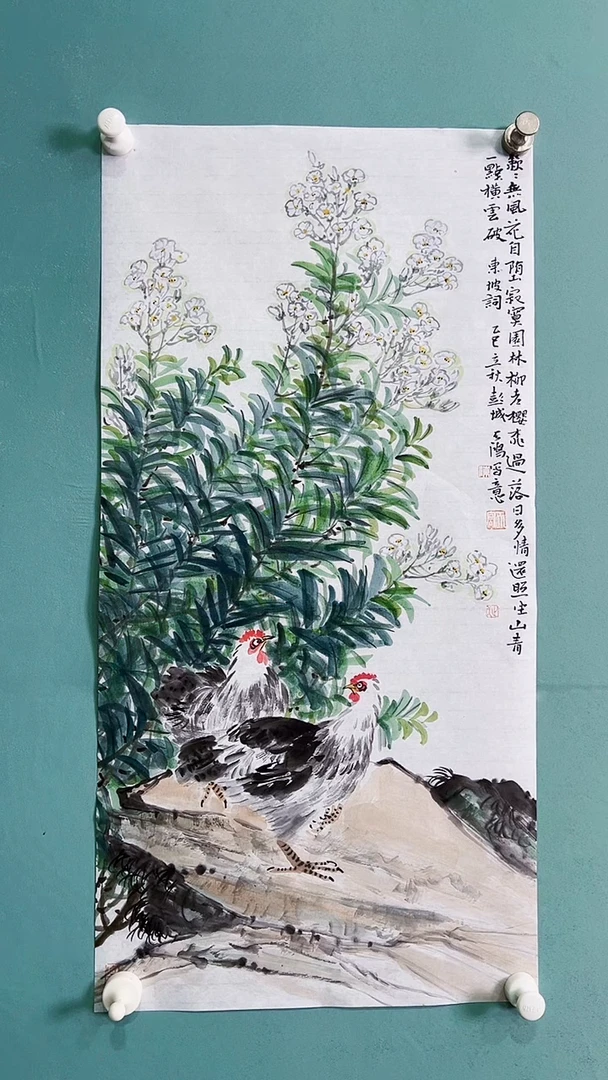 蔌〻無風花自墮寂寞園林柳老櫻桃過落日多情還照坐山青
一點橫雲破 東坡詞 乙巳立秋彭城 鴻寫意